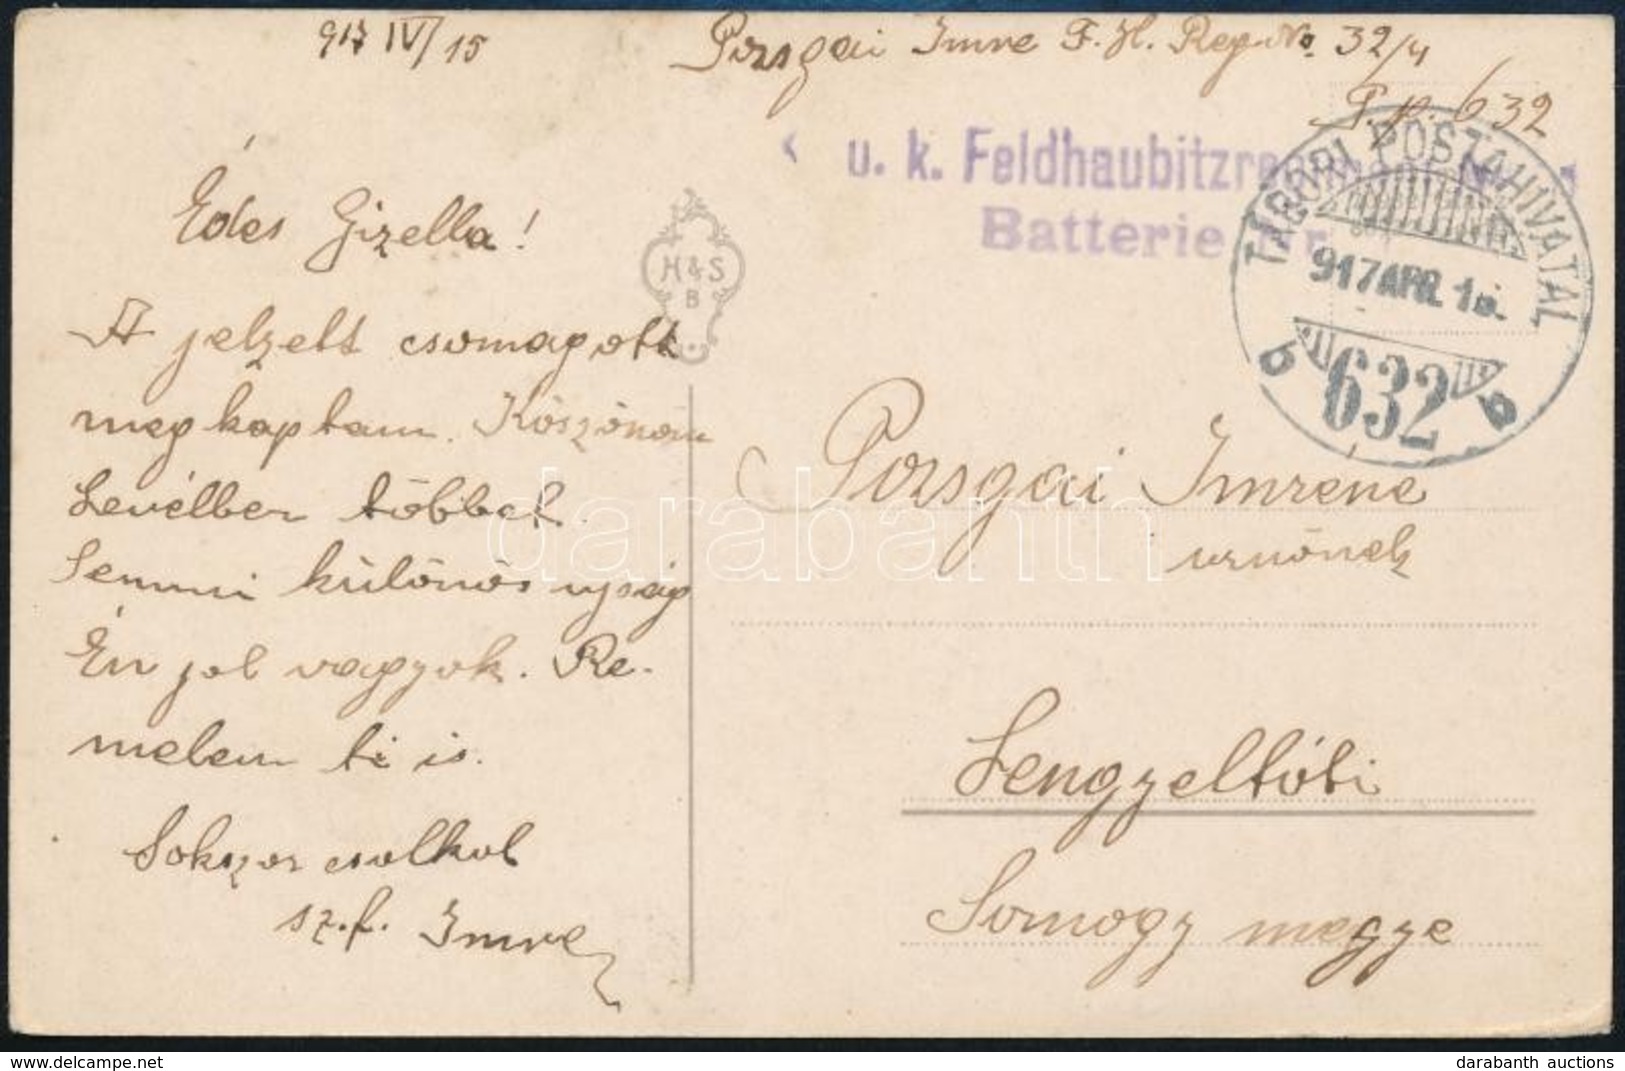 917 IV/15
Pozsgai Imre F. H. Reg No. 32/4
T. p. 632
u. k. Feldhaubitzreg
Batterie Nr
TÁBORI POSTAHIVATAL
917 APR. 15.
b 632 b
Édes Gizella!
H & S
B
A jelzett csomagott
megkaptam. Köszönöm
Levélben többet.
Semmi különös ujság
Én jol vagyok. Re-
melem ti is.
Sokszor csolkol
sz.f. Imre
Pozsgai Imréné
urnőnek
Lengyeltóti
Somogy megye
darabanth
www.delcampe.net
darabanth auctions